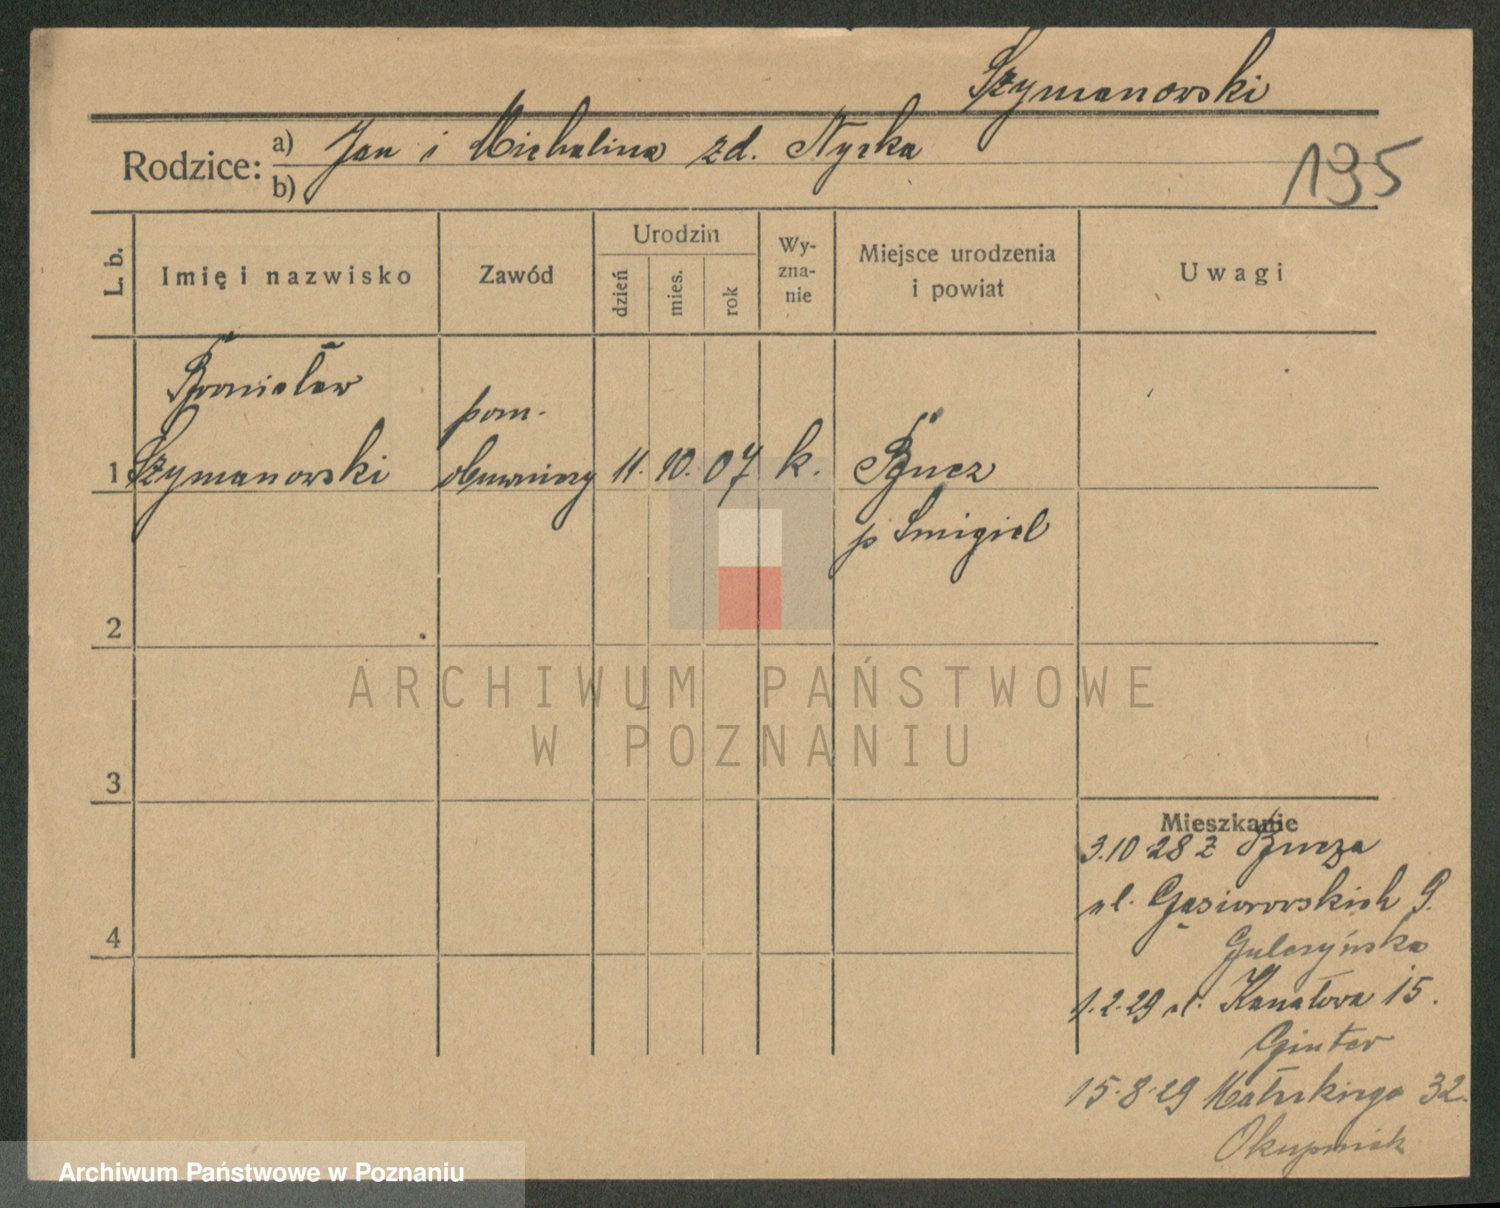 Szymanowski
Rodzice: a) Jan i Michalina zd. Nyczka
b)
195
L. b.
Imię i nazwisko
Zawód
Urodzin
dzień
mies.
rok
Wy-
zna-
nie
Miejsce urodzenia
i powiat
Uwagi
Bronisław pom.
1 Szymanowski obuwniczy 11. 10. 07 k. Bucz
p Śmigiel
2
3
4
Mieszkanie
3.10.28 z Bucza
ul. Gąsiorowskich 9.
Gulczyńska
1.2.29 ul. Kanałowa 15.
Ginter
15.8.29 Małeckiego 32.
ARCHIWUM PAŃSTWOWE
W POZNANIU
Archiwum Państwowe w Poznaniu